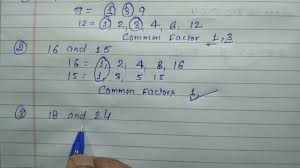 9 = 1, 3 9
12 = 1, 2, 3, 4, 6, 12
Common Factor 1, 3
② 16 and 15
16 = 1, 2, 4, 8, 16
15 = 1, 3, 5, 15
Common Factors 1
③ 18 and 24